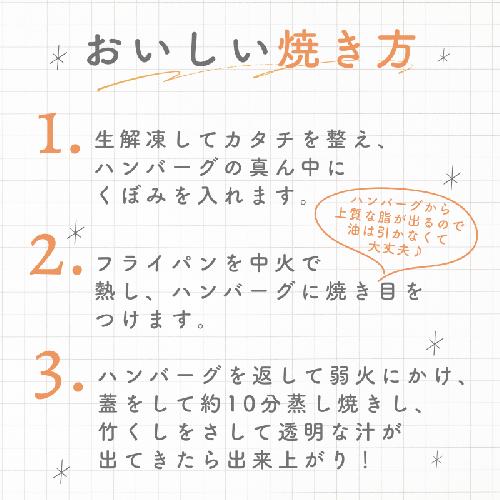 おいしい焼き方
1.
生解凍してカタチを整え、
ハンバーグの真ん中に
くぼみを入れます。
ハンバーグから
上質な脂が出るので
油は引かなくて
大丈夫♪
2.
フライパンを中火で
熱し、ハンバーグに焼き目を
つけます。
3.
ハンバーグを返して弱火にかけ、
蓋をして約10分蒸し焼きし、
竹くしをさして透明な汁が
出てきたら出来上がり！